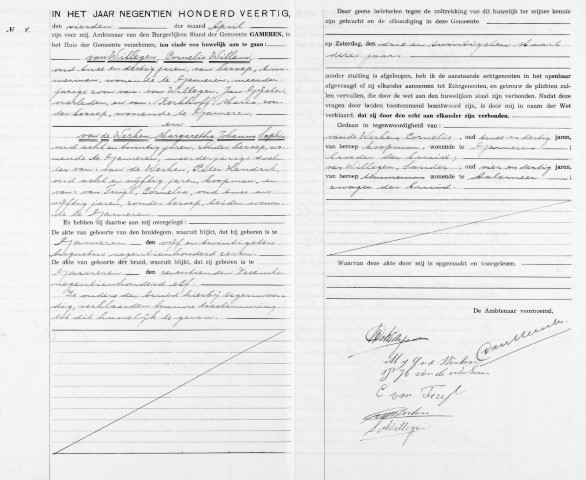 IN HET JAAR NEGENTIEN HONDERD VEERTIG,
No 4.
den vierden der maand April
zijn voor mij, Ambtenaar van den Burgerlijken Stand der Gemeente GAMEREN, in
het Huis der Gemeente verschenen, ten einde een huwelijk aan te gaan:
van Willigen, Cornelis Willem,
oud twee en dertig jaren, van beroep
timmerman, wonende te Gameren, meerder-
jarige zoon van: van Willigen, Jan
overleden, en van: Kerkhoff, Maria, zon-
der beroep, wonende te Gameren.
en
van de Werken, Margaretha Johanna Sophia
oud acht en twintig jaren, zonder beroep, wo-
nende te Gameren, meerderjarige doch-
ter van: van de Werken, Peter Hendrik,
oud acht en vijftig jaren, koopman, en
van: van Tuijl, Cornelia, oud twee en
vijftig jaren, zonder beroep, beiden wonen-
de te Gameren.
En hebben zij daartoe aan mij overgelegd:
De akte van geboorte van den bruidegom, waaruit blijkt, dat hij geboren is te
Gameren den vijf en twintigsten
Augustus negentienhonderd zeven.
De akte van geboorte der bruid, waaruit blijkt, dat zij geboren is te
Gameren den zeventienden December
negentienhonderd elf.
De ouders der bruid hierbij tegenwoor-
dig, verklaarden hunne toestemming
tot dit huwelijk te geven.
Daar geene beletselen tegen de voltrekking van dit huwelijk ter mijner kennis
zijn gebracht en de afkondiging in deze Gemeente
op Zaterdag, den drie en twintigsten Maart
dezes jaars
zonder stuiting is afgeloopen, heb ik de aanstaande echtgenooten in het openbaar
afgevraagd of zij elkander aannemen tot Echtgenooten, en getrouw de plichten zul-
len vervullen, die door de wet aan den huwelijken staat zijn verbonden. Nadat deze
vragen door beiden toestemmend beantwoord zijn, is door mij in naam der Wet
verklaard, dat zij door den echt aan elkander zijn verbonden.
Gedaan in tegenwoordigheid van:
van de Werken, Cornelis, oud en dertig jaren,
van beroep koopman, wonende te Gameren,
broeder der bruid;
van Willigen, oud vier en dertig jaren,
van beroep timmerman wonende te Aalsmeer
zwager der bruid.
Waarvan deze akte door mij is opgemaakt en voorgelezen.
De Ambtenaar voornoemd,
M J S v d Werken
P H van de Werken
C van Tuijl
v Willigen